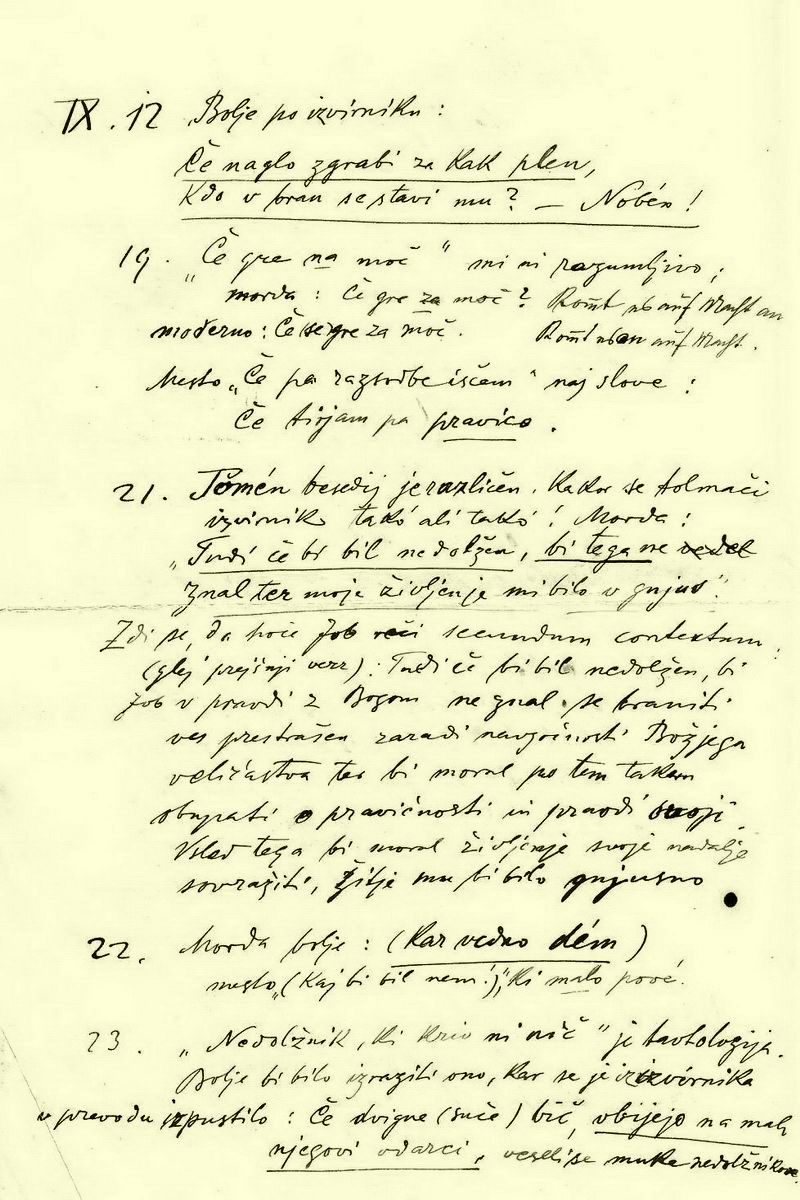 IX. 12 Bolje po izvirniku :
Če naglo zgrabi za kak plen,
Kdo v bran se stavi mu? — Nobén!
19. „Če gre na moč" mi ni razumljivo;
morda: Če gre za moč? Komt es auf Macht an
moderno: Če se gre za moč. Komt es an auf Macht.
Mesto „Če pa razsodbe iščem" naj slove:
Če tirjam pa pravico.
21. Pomén besedij je različen. Kakor se tolmači
izvirnik takó ali takó! Morda:
„Tudi če bi bil nedolžen, bi tega ne vedel
Znal ter moje življenje mi bilo v gnjus".
Zdi se, da hoče Job reči secundum contextum
(glej prejšnji verz): Tudi če bi bil nedolžen, bi
Job v pravdi z Bogom ne znal se braniti
ves prestrašen zaradi navzočnosti Božjega
veličastva ter bi moral po tem takem
obupati o pravičnosti in pravdi svoji.
Vsled tega bi moral življenje svoje nadalje
sovražiti, žitje mu bi bilo gnjusno
22. Morda bolje: (Kar vedno dém)
mesto „(Kaj bi bil nem!)", ki malo pové.
23. „Nedolžnik, ki kriv ni nič" je tavtologija.
Bolje bi bilo izraziti ono, kar se je iz izvirnika
v prevodu izpustilo: Če dvigne (suče) bič, ubijejo na mah
njegovi udarci, veseli se muke nedolžnikove.